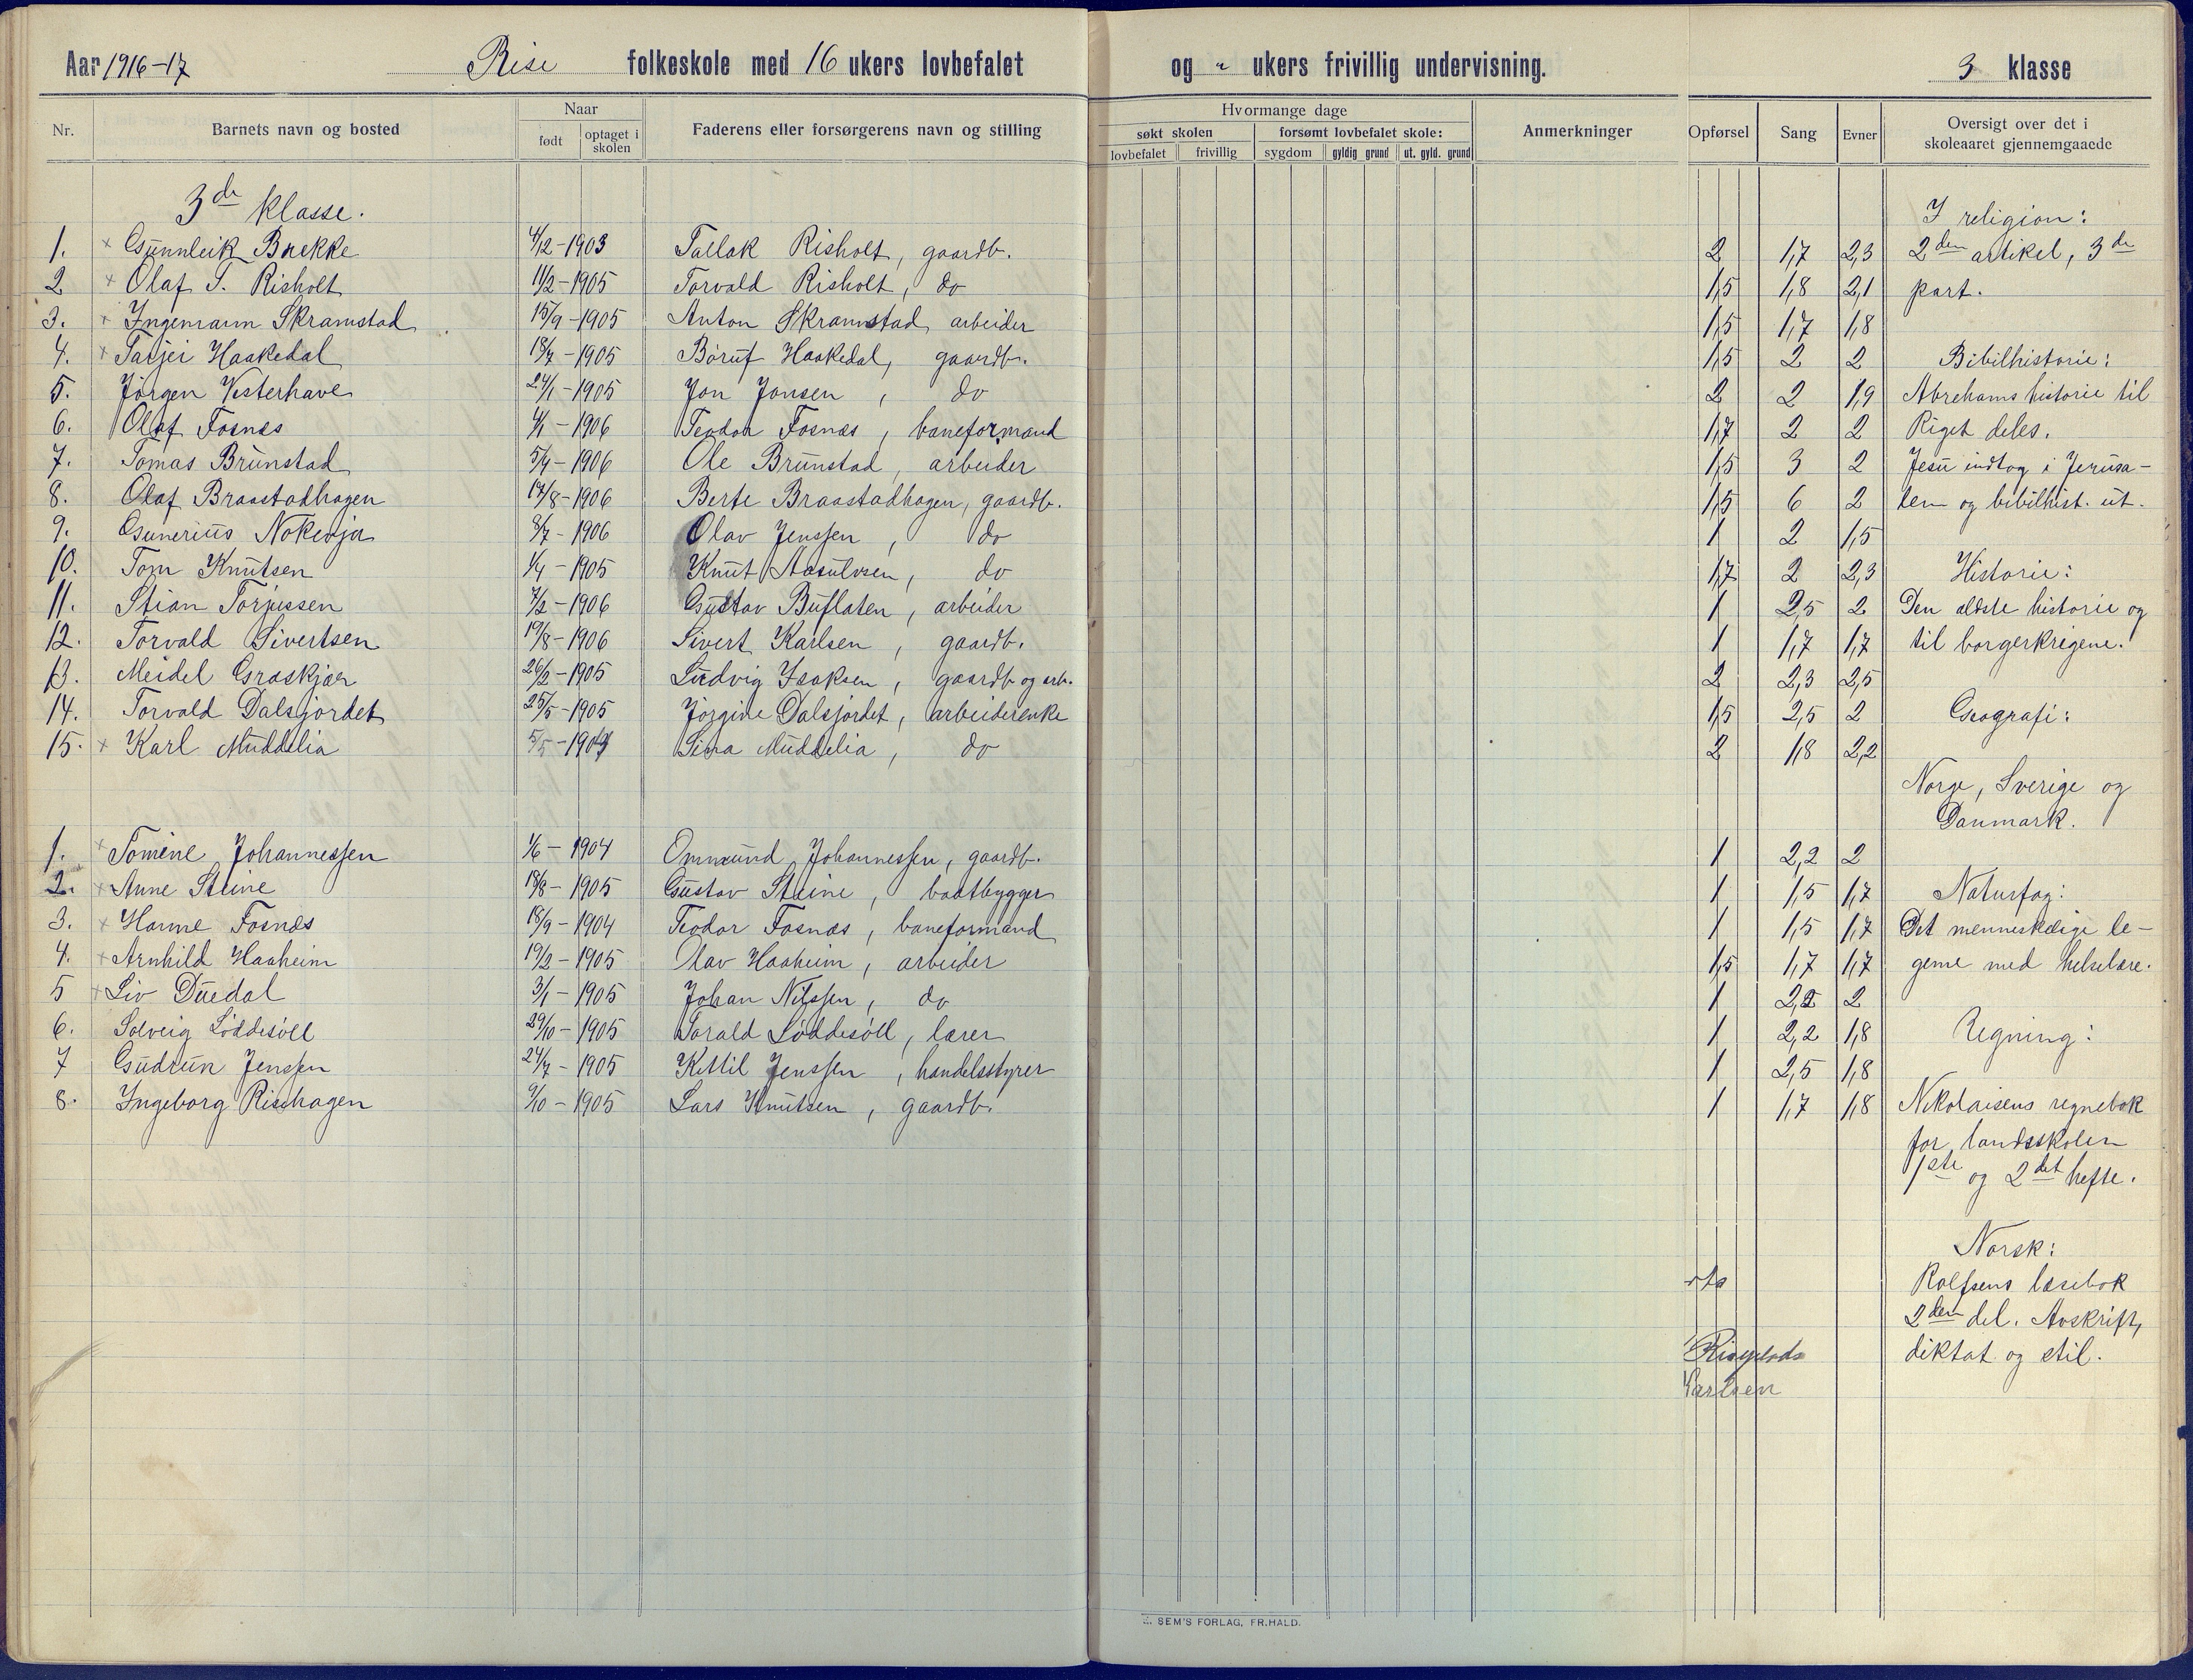 Aar 1916-17 Rise folkeskole med 16 ukers lovbefalet og " ukers frivillig undervisning. 3 klasse
Nr. Barnets navn og bosted Naar født optaget i skolen Faderens eller forsørgerens navn og stilling
Hvormange dage søkt skolen lovbefalet frivillig forsømt lovbefalet skole: sygdom gyldig grund ut. gyld. grund Anmerkninger
Opførsel Sang Evner Oversigt over det i skoleaaret gjennemgaaede
3de klasse.
1. × Gunnleik Brekke 4/12-1903 Tallak Risholt, gaardb. 2 1,7 2,3
2 × Olaf T. Risholt 11/2-1905 Torvald Risholt, do 1,5 1,8 2,1
3. × Ingemann Skramstad 15/9-1905 Anton Skramstad arbeider 1,5 1,7 1,8
4. × Tarjei Haakedal 18/7-1905 Børuf Haakedal, gaardb. 1,5 2 2
5. Jørgen Vesterhave 24/1-1905 Jon Jonsen, do 2 2 1,9
6. Olaf Fosnæs 4/1-1906 Teodor Fosnæs, baneformand 1,7 2 2
7. Tomas Brunstad 5/4-1906 Ole Brunstad, arbeider 1,5 3 2
8. Olaf Braastadhagen 14/8-1906 Berte Braastadhagen, gaardb. 1,5 6 2
9. Gunerius Nokevja 8/7-1906 Olav Jenssen, do 1 2 1,5
10. Tom Knutsen 1/4-1905 Knut Aasulvsen, do 1,7 2 2,3
11. Stian Torjussen 7/2-1906 Gustav Buflaten, arbeider 1 2,5 2
12. Torvald Sivertsen 19/8-1906 Sivert Karlsen, gaardb. 1 1,7 1,7
13. Meidel Græskjær 26/2-1905 Ludvig Isaksen, gaardb og arb. 2 2,3 2,5
14. Torvald Dalsjordet 25/5-1905 Jørgine Dalsjordet, arbeiderenke 1,5 2,5 2
15. × Karl Muddelia 5/5-1904 Sina Muddelia, do 2 1,8 2,2
1. × Tomine Johannessen 1/6-1904 Ommund Johannessen, gaardb. 1 2,2 2
2. × Anne Steine 18/8-1905 Gustav Steine, baatbygger 1 1,5 1,7
3. × Hanne Fosnæs 18/9-1904 Teodor Fosnæs, baneformand 1 1,5 1,7
4. × Arnhild Haaheim 19/2-1905 Olav Haaheim, arbeider 1,5 1,7 1,7
5 × Liv Duedal 3/1-1905 Johan Nilssen, do 1 2,2 2
6. Solveig Løddesøll 29/10-1905 Torald Løddesøll, lærer 1 2,2 1,8
7 Gudrun Jenssen 24/7-1905 Kittil Jenssen, handelsstyrer 1 2,5 1,8
8. Ingeborg Risehagen 9/10-1905 Lars Knutsen, gaardb. 1 1,7 1,8
I religion:
2den artikel, 3de
part.
Bibilhistorie:
Abrehams historie til
Riget deles.
Jesu indtog i Jerusa-
lem og bibilhist. ut.
Historie:
Den ældste historie og
til borgerkrigene.
Geografi:
Norge, Sverige og
Danmark.
Naturfag:
Det menneskelige le-
geme med helselære.
Regning:
Nikolaisens regnebok
for landsskolen
1ste og 2det hefte.
Norsk:
Rolfsens læsebok
2den del. Avskrift,
diktat og stil.
Karlsen
E. SEM'S FORLAG, FR.HALD.